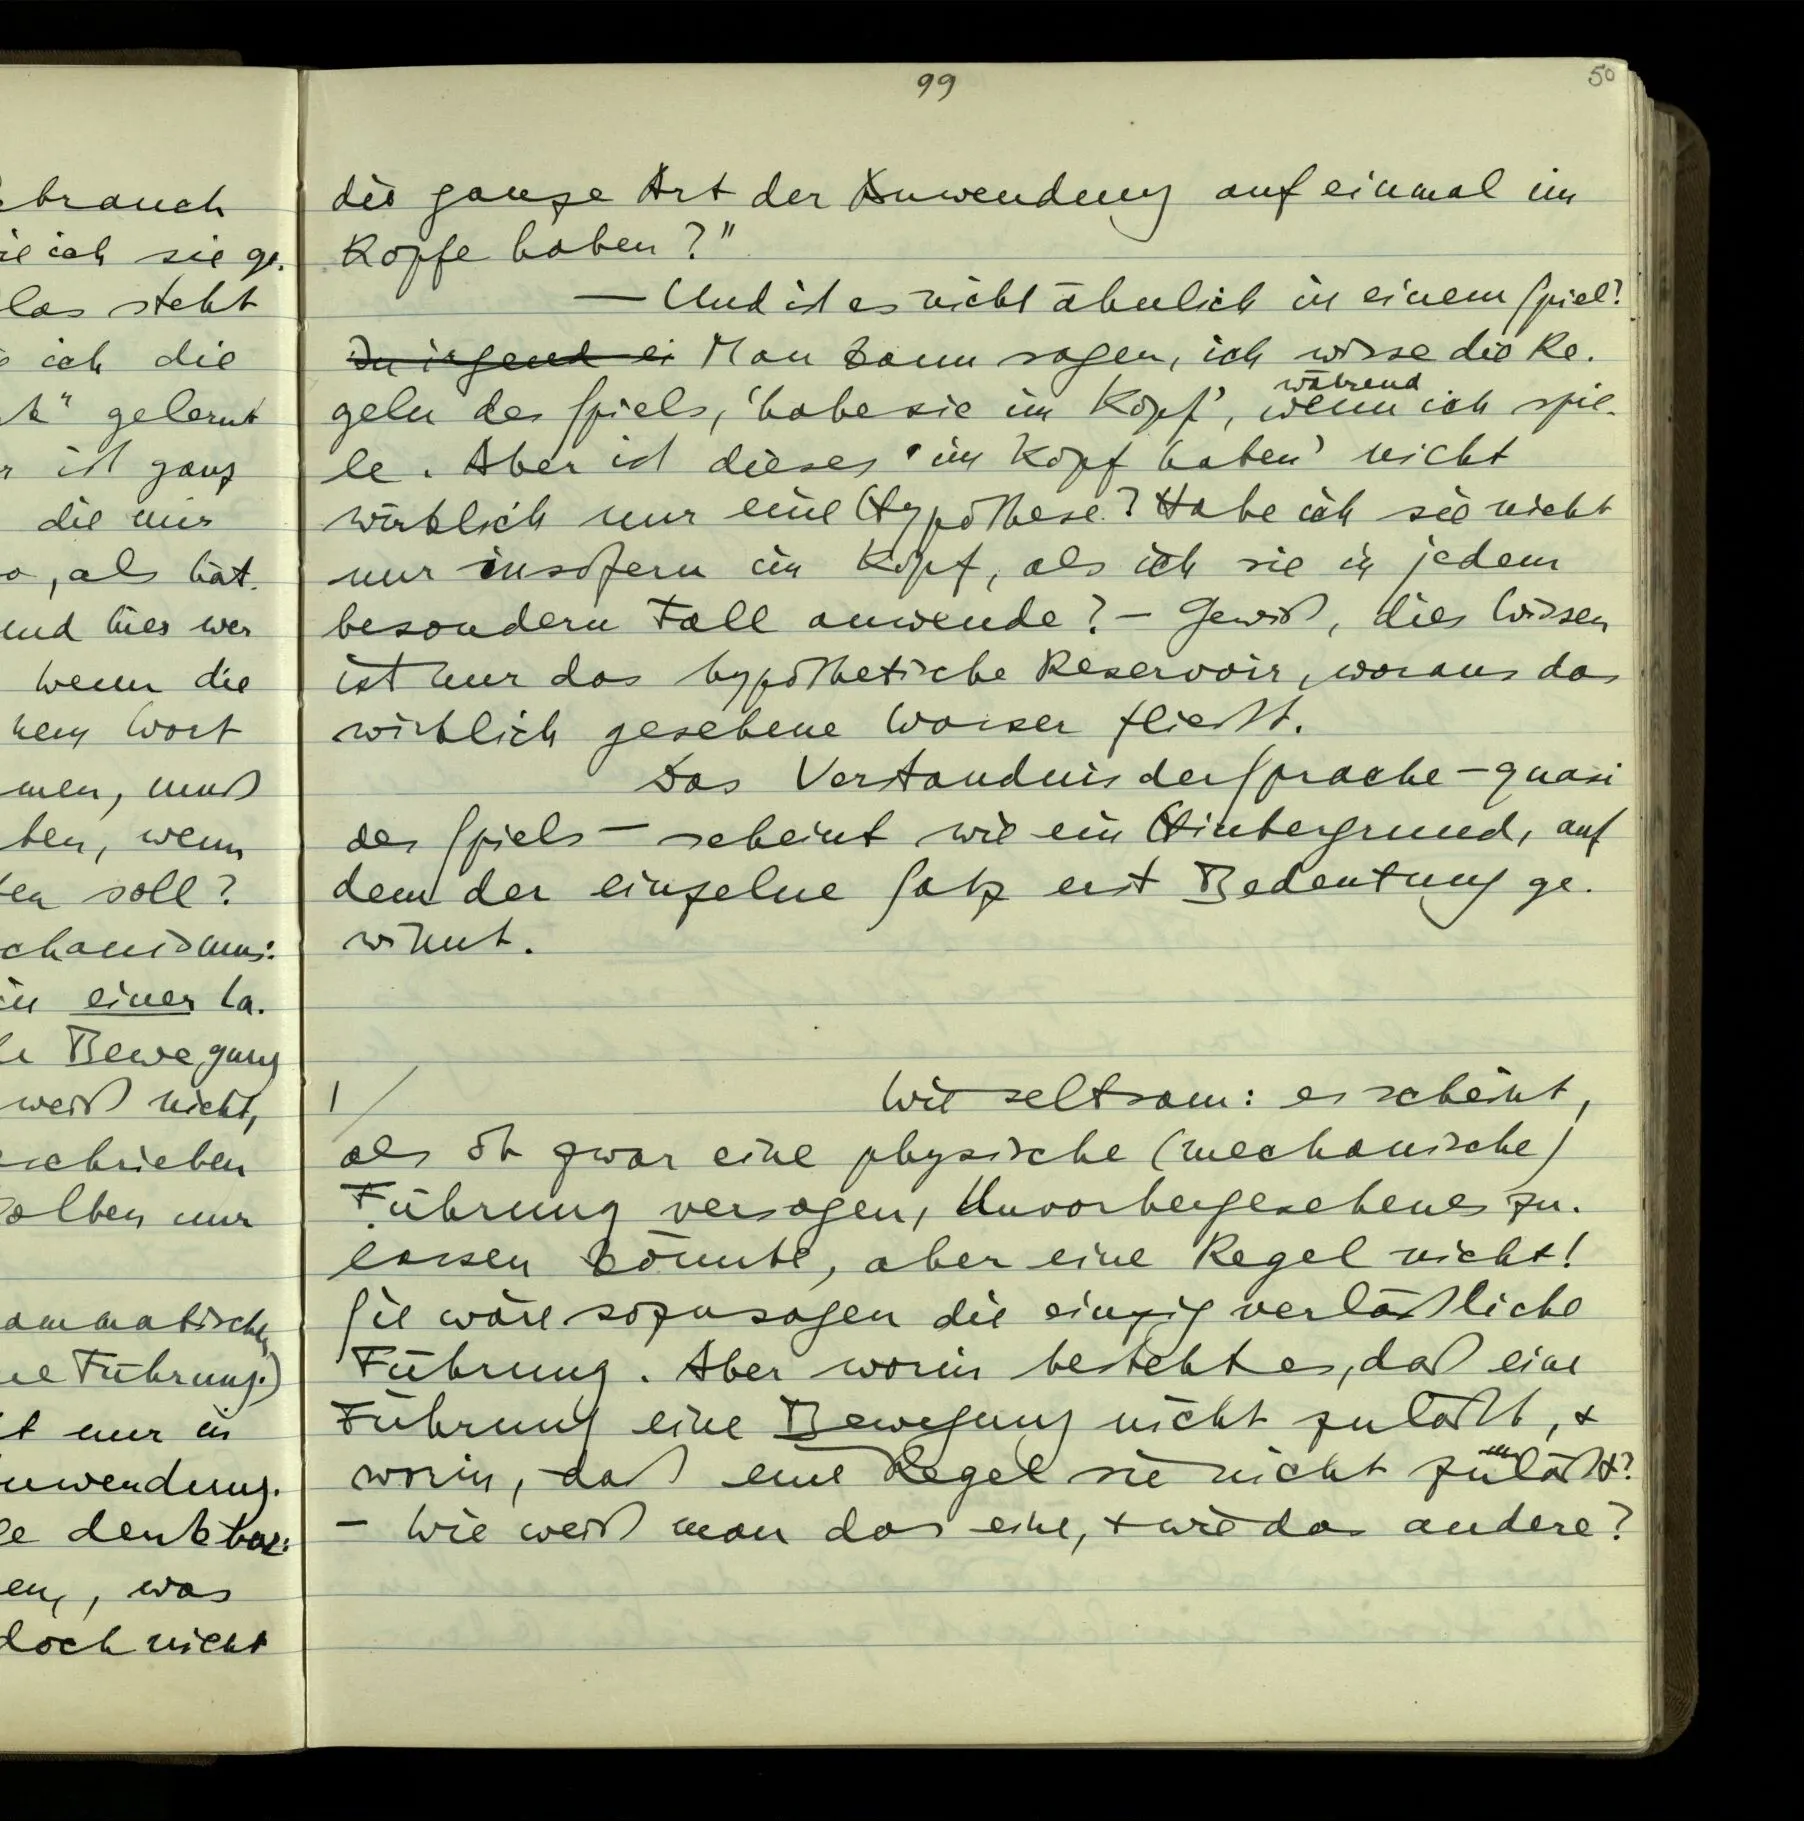 brauch
ie ich sie ge-
las steht
ich die
k" gelernt
r ist ganz
die mir
o, als hät-
und
wenn die
nem Wort
men, muß
ben, wenn
ten soll?
chanismus:
in einer La-
Bewegung
weiß nicht,
schrieben
sollten nur
ammatischen
ne Führung.)
t nur in
nwendung.
e denkbar:
en, was
doch nicht
99
50
die ganze Art der Anwendung auf einmal im
Kopfe haben?"
— Und ist es nicht ähnlich in einem Spiel?
In irgend ei Man kann sagen, ich wisse die Re-
während
geln des Spiels, 'habe sie im Kopf', wenn ich spie-
le. Aber ist dieses 'im Kopf haben' nicht
wirklich nur eine Hypothese? Habe ich sie nicht
nur insofern im Kopf, als ich sie in jedem
besondern Fall anwende? – Gewiß, dies Wissen
ist nur das hypothetische Reservoir, woraus das
wirklich gesehene Wasser fließt.
Das Verständnis der Sprache – quasi
des Spiels – scheint wie ein Hintergrund, auf
dem der einzelne Satz erst Bedeutung ge-
winnt.
1 / Wie seltsam: es scheint,
als ob zwar eine physische (mechanische)
Führung versagen, Unvorhergesehenes zu-
lassen könnte, aber eine Regel nicht!
Sie wäre sozusagen die einzig verläßliche
Führung. Aber worin besteht es, daß eine
Führung eine Bewegung nicht zuläßt, &
worin, daß eine Regel sie nicht zuläßt?
– Wie weiß man das eine, & wie das andere?